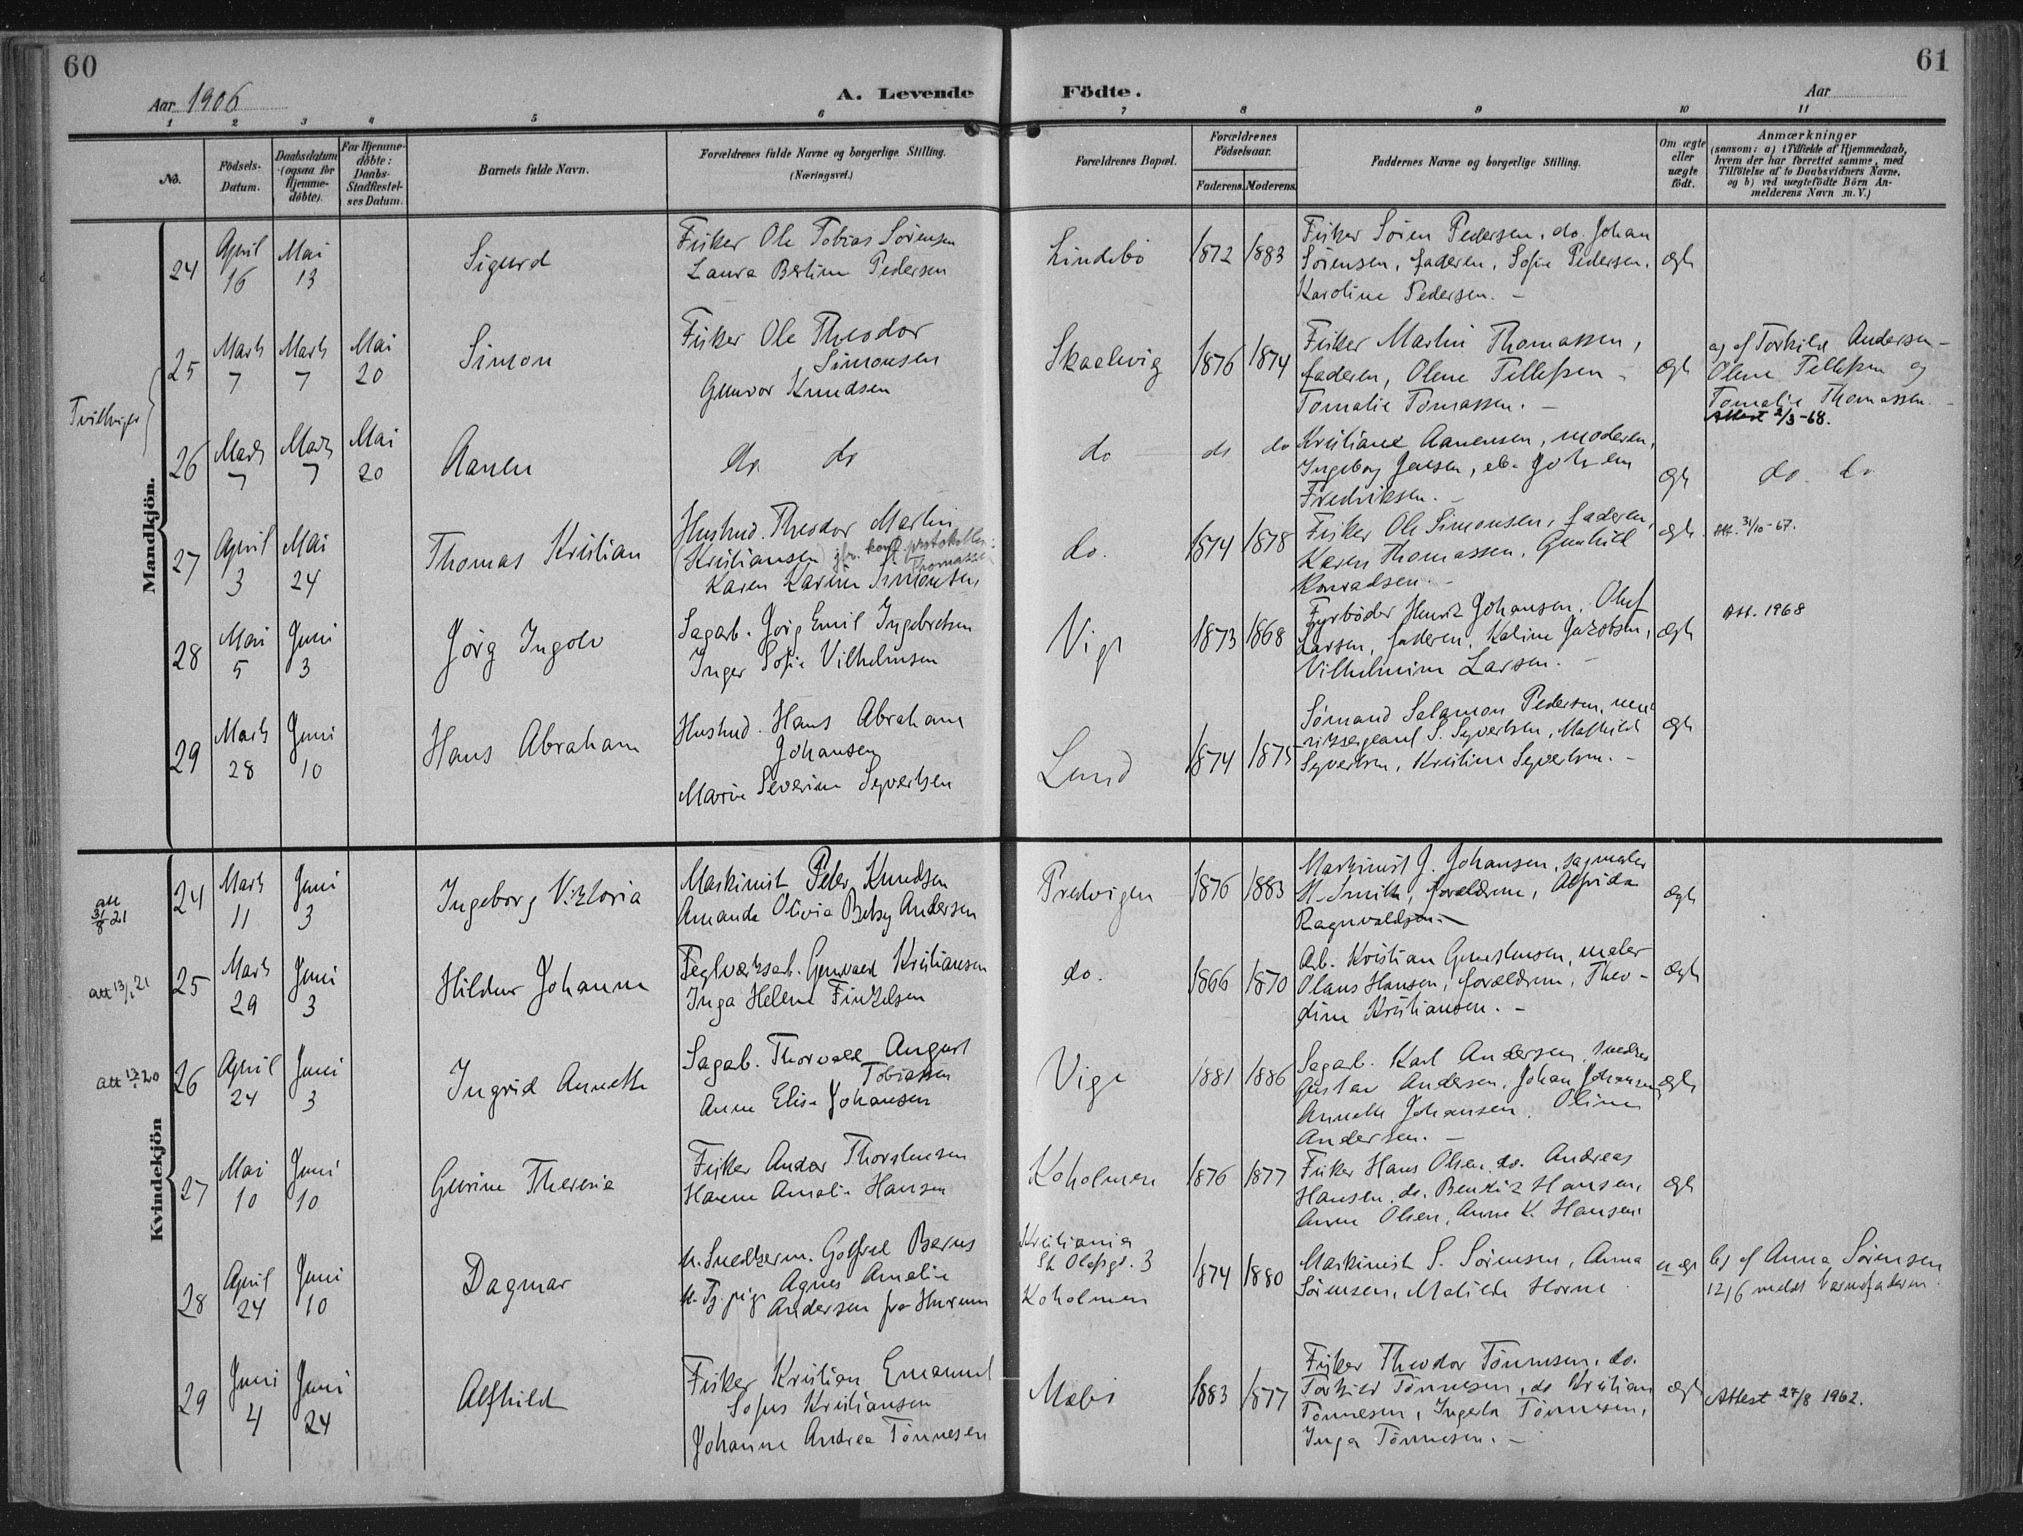 60
61
Aar 1906
A. Levende
Födte.
Aar
1 2 3 4 5 6 7 8 9 10 11
No.
Födsels-
Datum.
Daabsdatum
(ogsaa for
Hjemme-
døbte).
For Hjemme-
døbte:
Daabs-
Stadfæstel-
ses Datum.
Barnets fulde Navn.
Forældrenes fulde Navne og borgerlige Stilling.
(Næringsvei.)
Forældrenes Bopæl.
Forældrenes
Födselsaar.
Faderens.
Moderens.
Faddernes Navne og borgerlige Stilling.
Om ægte
eller
uægte
födt.
Anmærkninger
(saasom: a) i Tilfælde af Hjemmedaab,
hvem der har forrettet samme, med
Tilföielse af to Daabsvidners Navne,
og b) ved uægtefödte Börn An-
melderens Navn m.V.)
Mandkjön.
24
April
16
Mai
13
Sigurd
Fisker Ole Tobias Sörensen
Laura Bertine Pedersen
Lindebö
1872
1883
Fisker Sören Pedersen, do. Johan
Sörensen, faderen, Sofie Pedersen,
Karoline Pedersen. –
ægte
Tvillinger
25
Marts
7
Marts
7
Mai
20
Simon
Fisker Ole Theodor
Simonsen
Gunvor Knudsen
Skaalevig
1876
1874
Fisker Martin Thomassen,
faderen, Olene Tellefsen –
Tomalie Tomassen. –
ægte
a) af Torkild Andersen –
Olene Tellefsen og
Tomalie Thomassen.
Attest 2/3-68.
26
Marts
7
Marts
7
Mai
20
Aanen
do do
do
do
do
Kristiane Aanensen, moderen,
Ingeborg Jensen,
Fredriksen. –
ægte
do. do
27
April
3
Mai
24
Thomas Kristian
Husmd. Theodor Martin
(Kristiansen) jfr. konf. protokollen:
Thomassen
Karen Karine Simonsen
do.
1874
1878
Fisker Ole Simonsen, faderen,
Karen Thomassen, Gunhild
Konradsen. –
ægte
Att. 31/10-67.
28
Mai
5
Juni
3
Jörg Ingolv
Sagarb. Jörg Emil Ingebretsen
Inger Sofie Vilhelmsen
Vige
1873
1868
Fyrböder Henrik Johansen, Oluf
Larsen, faderen, Kaline Jakobsen,
Vilhelmine Larsen. –
ægte
Att. 1968
29
Marts
28
Juni
10
Hans Abraham
Husmd. Hans Abraham
Johansen
Marie Severine Syvertsen
Lund
1874
1875
Sömand Salamon Pedersen,
S. Syvertsen, Mathilde
Syvertsen, Kristine Syvertsen. –
ægte
Kvindekjön
att
31/8-21
24
Marts
11
Juni
3
Ingeborg Viktoria
Maskinist Peder Knudsen
Amanda Olivia Betsy Andersen
Prestvigen
1876
1883
Maskinist J. Johansen, sagmester
M. Smith, forældrene, Alfrida
Ragnvaldsen. –
ægte
att 13/1 21
25
Marts
29
Juni
3
Hildur Johanne
Teglværksarb. Gunvald Kristiansen
Inga Helene Finkelsen
do.
1866
1870
Arb. Kristian Gunstensen, maler
Olaus Hansen, forældrene, Theo-
dine Kristiansen. –
ægte
att 20
26
April
24
Juni
3
Ingrid Annette
Sagarb. Thorvald August
Tobiassen
Anne Elise Johansen
Vige
1881
1886
Sagarb. Karl Andersen, snedker
Gustav Andersen, Johan Johansen,
Annette Johansen, Oline
Andersen. –
ægte
27
Mai
10
Juni
10
Gurine Theresie
Fisker Andor Thorstensen
Hanne Amalie Hansen
Koholmen
1876
1877
Fisker Hans Olsen, do. Andreas
Hansen, do. Hansen,
Anne Olsen, Anne K. Hansen.
ægte
28
April
24
Juni
10
Dagmar
U. Snedkerm. Golfred Bernes
U. Tj. pige Agnes Amalie
Andersen fra Hurum
Kristiania
St. Olafsgd. 3
Koholmen
1874
1880
Maskinist S. Sörensen, Anna
Sörensen, Matilde Horne
uæg
b) af Anna Sörensen
12/6 meldt Barnefaderen
29
Juni
4
Juni
24
Alfhild
Fisker Kristian Emanuel
Sofus Kristiansen
Johanne Andrea Tönnesen
Mæbö
1883
1877
Fisker Theodor Tönnesen, do.
Torkild Tönnesen, do Kristian
Tönnesen, Ingerta Tönnesen,
Inga Tönnesen. –
ægte
Attest 27/8 1962.